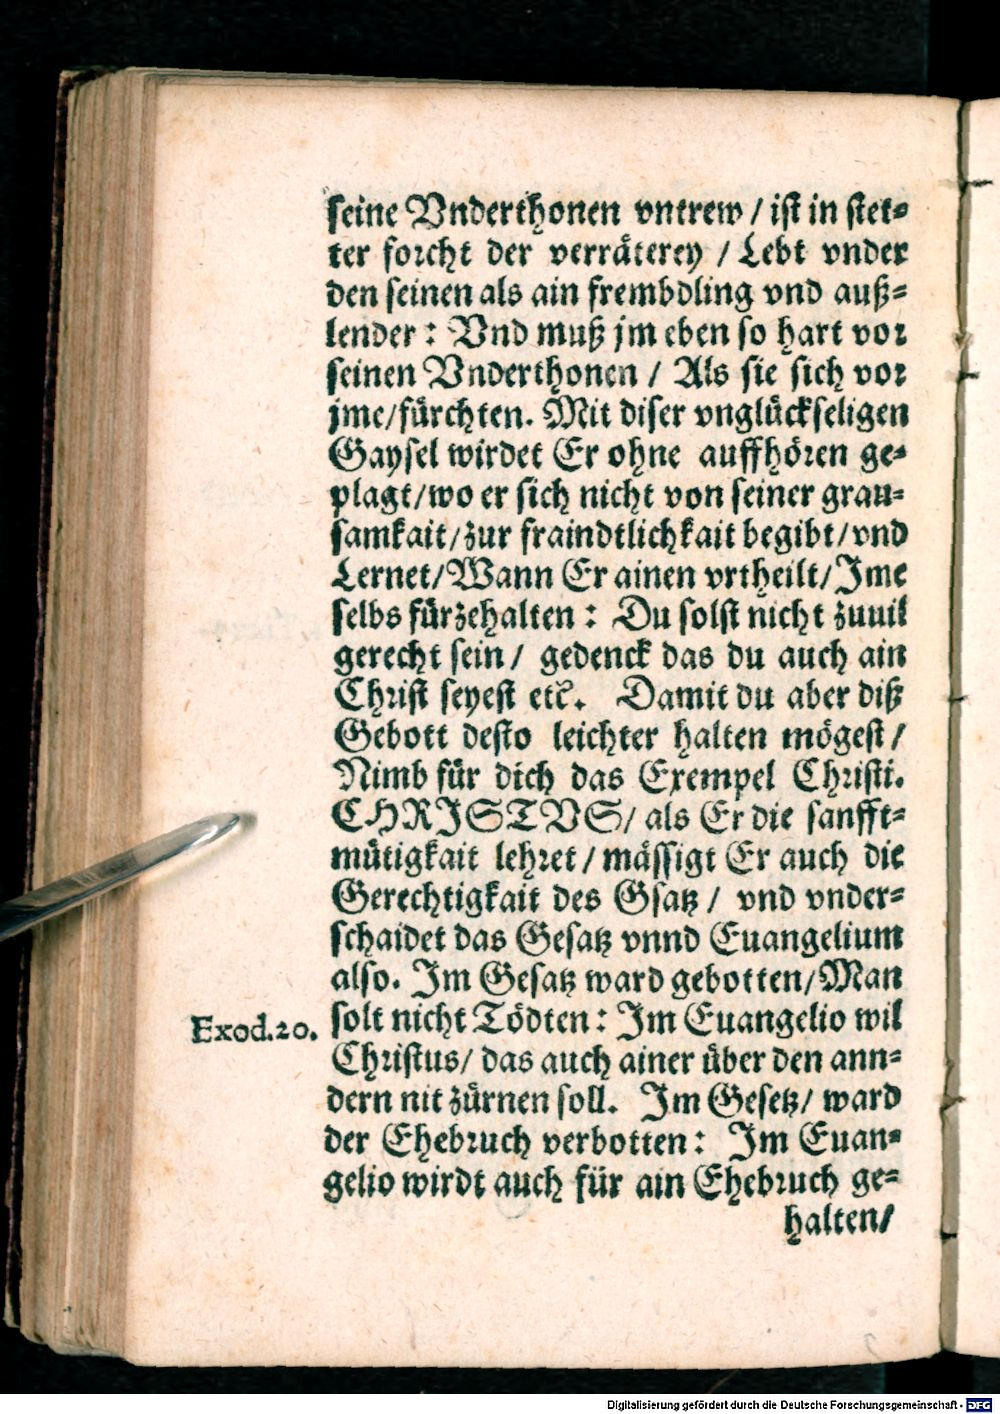 seine Vnderthonen vntrew / ist in stet-
ter forcht der verräterey / Lebt vnder
den seinen als ain frembdling vnd auß-
lender : Vnd muß jm eben so hart vor
seinen Vnderthonen / Als sie sich vor
jme/fürchten. Mit diser vnglückseligen
Gaysel wirdet Er ohne auffhören ge-
plagt/wo er sich nicht von seiner grau-
samkait/zur fraindtlichkait begibt/vnd
Lernet/Wann Er ainen vrtheilt/Jme
selbs fürzehalten : Du solst nicht zuuil
gerecht sein/ gedenck das du auch ain
Christ seyest etc. Damit du aber diß
Gebott desto leichter halten mögest/
Nimb für dich das Exempel Christi.
CHRISTVS/ als Er die sanfft-
mütigkait lehret/ mässigt Er auch die
Gerechtigkait des Gsatz/ vnd vnder-
schaidet das Gesatz vnnd Euangelium
also. Im Gesatz ward gebotten/Man
Exod.20. solt nicht Tödten : Im Euangelio wil
Christus/ das auch ainer über den ann-
dern nit zürnen soll. Im Gesetz/ ward
der Ehebruch verbotten : Im Euan-
gelio wirdt auch für ain Ehebruch ge-
halten/
Digitalisierung gefördert durch die Deutsche Forschungsgemeinschaft - DFG